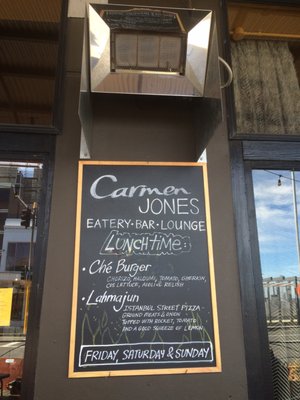 Carmen
JONES
EATERY • BAR • LOUNGE
LUNCHTIME:
• Ché Burger
CHORIZO, HALOUMI, TOMATO, GHERKIN,
COS LETTUCE, AIOLI & RELISH
• Lahmajun
ISTANBUL STREET PIZZA
GROUND MEATS & ONION
TOPPED WITH ROCKET, TOMATO
AND A GOOD SQUEEZE OF LEMON
FRIDAY, SATURDAY & SUNDAY